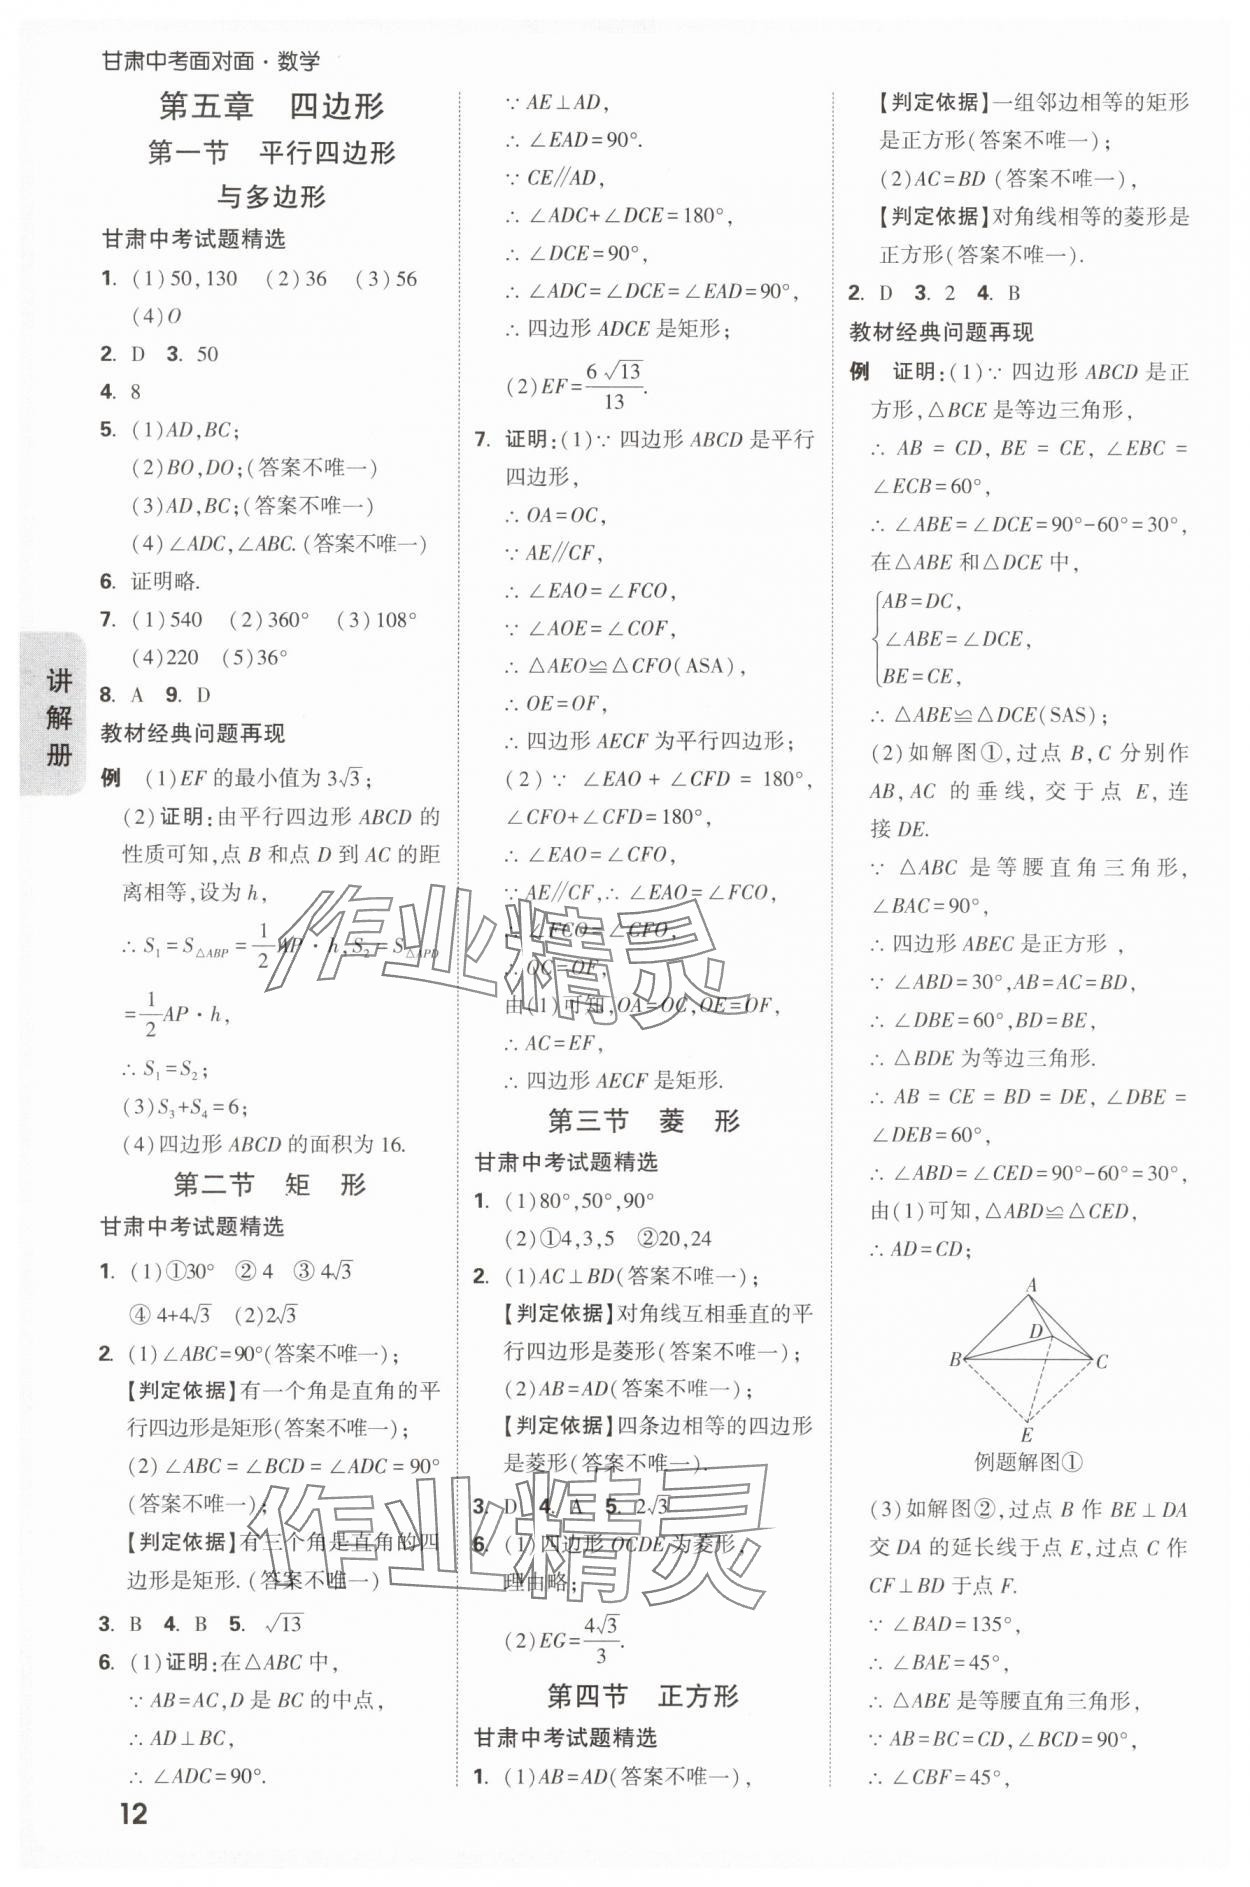 甘肃中考面对面·数学
第五章 四边形
第一节 平行四边形
与多边形
甘肃中考试题精选
1. (1)50,130 (2)36 (3)56
(4)O
2. D 3. 50
4. 8
5. (1)AD,BC;
(2)BO,DO;(答案不唯一)
(3)AD,BC;(答案不唯一)
(4)∠ADC,∠ABC.(答案不唯一)
6. 证明略.
7. (1)540 (2)360° (3)108°
(4)220 (5)36°
8. A 9. D
教材经典问题再现
例 (1)EF的最小值为3√3;
(2)证明:由平行四边形ABCD的
性质可知,点B和点D到AC的距
离相等,设为h,
∴S₁=S△ABP=1/2AP·h,S₂=S△APD
=1/2AP·h,
∴S₁=S₂;
(3)S₃+S₄=6;
(4)四边形ABCD的面积为16.
第二节 矩 形
甘肃中考试题精选
1. (1)①30° ②4 ③4√3
④4+4√3 (2)2√3
2. (1)∠ABC=90°(答案不唯一);
【判定依据】有一个角是直角的平
行四边形是矩形(答案不唯一);
(2)∠ABC=∠BCD=∠ADC=90°
(答案不唯一);
【判定依据】有三个角是直角的四
边形是矩形.(答案不唯一)
3. B 4. B 5. √13
6. (1)证明:在△ABC中,
∵AB=AC,D是BC的中点,
∴AD⊥BC,
∴∠ADC=90°.
∵AE⊥AD,
∴∠EAD=90°.
∵CE∥AD,
∴∠ADC+∠DCE=180°,
∴∠DCE=90°,
∴∠ADC=∠DCE=∠EAD=90°,
∴四边形ADCE是矩形;
(2)EF=6√13/13.
7. 证明:(1)∵四边形ABCD是平行
四边形,
∴OA=OC,
∵AE∥CF,
∴∠EAO=∠FCO,
∵∠AOE=∠COF,
∴△AEO≌△CFO(ASA),
∴OE=OF,
∴四边形AECF为平行四边形;
(2)∵∠EAO+∠CFD=180°,
∠CFO+∠CFD=180°,
∴∠EAO=∠CFO,
∵AE∥CF,∴∠EAO=∠FCO,
∴∠FCO=∠CFO,
∴OC=OF,
由(1)可知,OA=OC,OE=OF,
∴AC=EF,
∴四边形AECF是矩形.
第三节 菱 形
甘肃中考试题精选
1. (1)80°,50°,90°
(2)①4,3,5 ②20,24
2. (1)AC⊥BD(答案不唯一);
【判定依据】对角线互相垂直的平
行四边形是菱形(答案不唯一);
(2)AB=AD(答案不唯一);
【判定依据】四条边相等的四边形
是菱形(答案不唯一).
3. D 4. A 5. 2√3
6. (1)四边形OCDE为菱形,
理由略;
(2)EG=4√3/3.
第四节 正方形
甘肃中考试题精选
1. (1)AB=AD(答案不唯一),
【判定依据】一组邻边相等的矩形
是正方形(答案不唯一);
(2)AC=BD(答案不唯一),
【判定依据】对角线相等的菱形是
正方形(答案不唯一).
2. D 3. 2 4. B
教材经典问题再现
例 证明:(1)∵四边形ABCD是正
方形,△BCE是等边三角形,
∴AB=CD,BE=CE,∠EBC=
∠ECB=60°,
∴∠ABE=∠DCE=90°-60°=30°,
在△ABE和△DCE中,
AB=DC,
∠ABE=∠DCE,
BE=CE,
∴△ABE≌△DCE(SAS);
(2)如解图①,过点B,C分别作
AB,AC的垂线,交于点E,连
接DE.
∵△ABC是等腰直角三角形,
∠BAC=90°,
∴四边形ABEC是正方形,
∵∠ABD=30°,AB=AC=BD,
∴∠DBE=60°,BD=BE,
∴△BDE为等边三角形.
∴AB=CE=BD=DE,∠DBE=
∠DEB=60°,
∴∠ABD=∠CED=90°-60°=30°,
由(1)可知,△ABD≌△CED,
∴AD=CD;
A
D
B
C
E
例题解图①
(3)如解图②,过点B作BE⊥DA
交DA的延长线于点E,过点C作
CF⊥BD于点F.
∵∠BAD=135°,
∴∠BAE=45°,
∴△ABE是等腰直角三角形,
∵AB=BC=CD,∠BCD=90°,
∴∠CBF=45°,
讲解册
12
作业精灵
作业精灵